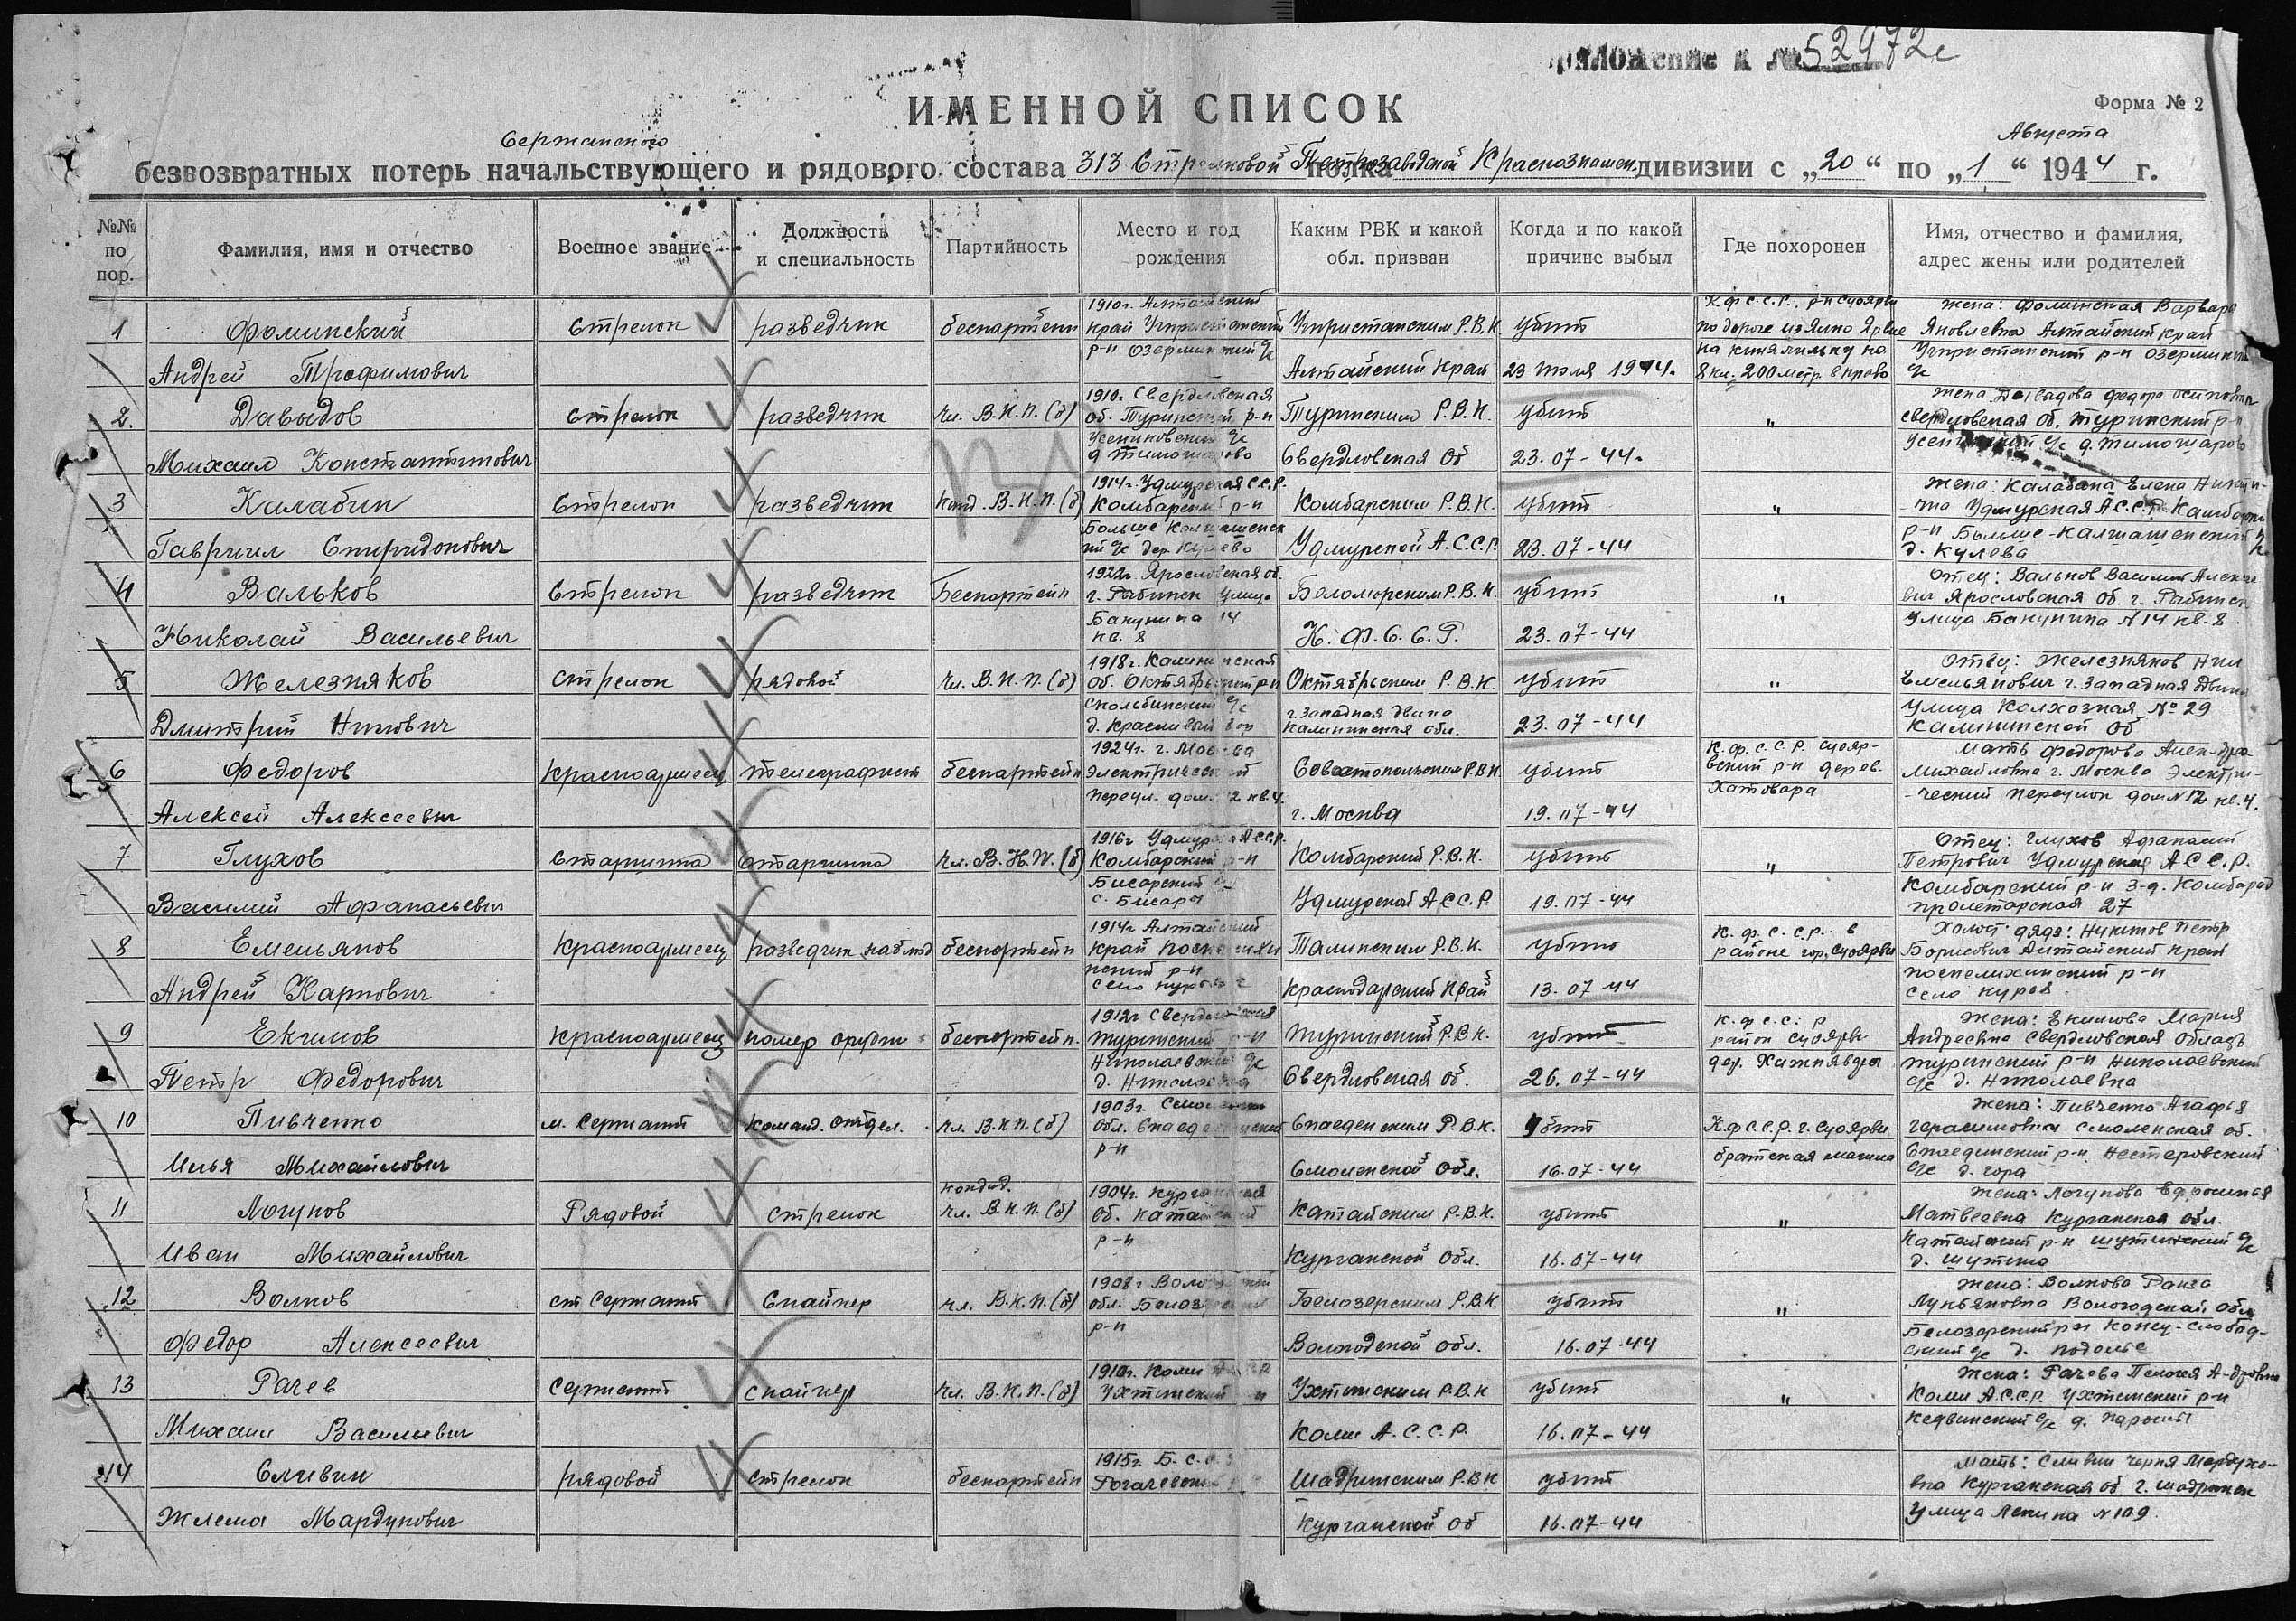 риложение к № 52972с
ИМЕННОЙ СПИСОК
Форма № 2
Сержанского
Августа
безвозвратных потерь начальствующего и рядового состава 313 Стрелковой Петрозаводской Краснознамен. полка дивизии с „20“ по „1“ 1944 г.
№№ по пор.
Фамилия, имя и отчество
Военное звание
Должность и специальность
Партийность
Место и год рождения
Каким РВК и какой обл. призван
Когда и по какой причине выбыл
Где похоронен
Имя, отчество и фамилия, адрес жены или родителей
1 Фоминский Стрелок разведчик беспартейн 1910г. Алтайский край Угпристанский р-н Озерминский с/с Угпристанским Р.В.К. убит К.ф.С.С.Р. р-н Суоярви жена: Фоминская Варвара
Андрей Трофимович Алтайский край 23 июля 1944. 8 км. 200 метр. вправо Яковлевна Алтайский край Угпристанский р-н
2. Давыдов Стрелок разведчик чл. В.К.П.(б) 1910г. Свердловская об. Туринский р-н Усениновский с/с Туринским Р.В.К. убит „ жена
Михаил Константинович Свердловская Об 23.07-44. Свердловская об. Туринский р-н
3 Калабин Стрелок разведчик канд. В.К.П.(б) 1914г. Удмурская С.С.Р. Комбарский р-н Комбарским Р.В.К. убит „ жена: Калабина Елена
Гавриил Спиридонович Удмурской А.С.С.Р. 23.07-44 Удмурская А.С.С.Р. д. Кулева
4 Вальков Стрелок разведчик Беспартейн 1922г. Ярославская об. г. Рыбинск улица Бакунина 14 кв. 8 Беломорским Р.В.К. убит „ Отец: Вальков Василий
Николай Васильевич К.Ф.С.С.Р. 23.07-44 Ярославская об. г. Рыбинск улица Бакунина №14 кв. 8
5 Железняков стрелок рядовой чл. В.К.П.(б) 1918г. Калининская об. Октябрьский р-н Октябрьским Р.В.К. убит „ Отец: Железняков Нил
Дмитрий Нилович г. Западная Двина Калининская обл. 23.07-44 Емельянович г. Западная Двина улица Колхозная №29 Калининской Об
6 Федоров Красноармеец телеграфист беспартейн 1924г. г. Москва Электрический переул. дом 12 кв. 4. Севастопольским Р.В.К. убит К.ф.С.С.Р. Суоярвский р-н дерев. Хатовара Мать Федорова
Алексей Алексеевич г. Москва 19.07-44 Михайловна г. Москва Электрический переулок дом №12 кв. 4.
7 Глухов Старшина старшина чл. В.К.П.(б) 1916г Удмурская А.С.С.Р. Комбарский р-н Комбарский Р.В.К. убит „ Отец: Глухов Афанасий
Василий Афанасьевич Удмурской А.С.С.Р. 19.07-44 Петрович Удмурская А.С.С.Р. Комбарский р-н пролетарская 27
8 Емельянов Красноармеец разведчик наблюд беспартейн 1914г Алтайский край р-н село Талинским Р.В.К. убит К.ф.С.С.Р. в районе гор. Суоярви Холост дядя: Никитов Петр
Андрей Карпович Краснодарский край 13.07 44 Борисович Алтайский край поспелихинский р-н село
9 Екимов Красноармеец номер орудия беспартейн. 1912г Свердловская Туринский р-н Николаевский с/с Туринский Р.В.К. убит К.ф.С.С.Р район Суоярви жена: Екимова Мария
Петр Федорович Свердловская об. 26.07-44 Андреевна Свердловская область Туринский р-н Николаевский с/с
10 Пивченко м. Сержант команд. отдел. чл. В.К.П.(б) 1903г. обл. р-н Спаеденским Р.В.К. убит К.ф.С.С.Р. г. Суоярви братская могила жена: Пивченко Агафья
Илья Михайлович Смоленской Обл. 16.07-44 Герасимовна Смоленская об. Нестеровский с/с д. гора
11 Логунов Рядовой стрелок кандид. чл. В.К.П.(б) 1904г. Курганская об. Катайский р-н Катайским Р.В.К. убит „ жена: Логунова
Иван Михайлович Курганской Обл. 16.07-44 Матвеевна Курганская обл. Катайский р-н с/с д. Шутино
12 Волков ст Сержант Снайпер чл. В.К.П.(б) 1908г Вологодской обл. Белозерский р-н Белозерским Р.В.К. убит „ жена: Волкова
Федор Алексеевич Вологодской обл. 16.07-44 Лукьяновна Вологодская обл д. Подолье
13 Рачев Сержант снайпер чл. В.К.П.(б) 1910г. Коми Ухтинский р-н Ухтинским Р.В.К убит „ жена: Рачева
Михаил Васильевич Коми А.С.С.Р. 16.07-44 Коми А.С.С.Р. Ухтинский р-н
14 Сливин рядовой стрелок беспартейн 1915г. Б.С.С. Рогачевский Шадринским Р.В.К убит Мать: Сливин
Жлема Мардукович Курганской об 16.07-44 Курганская об г. Шадринск улица Ленина №109.